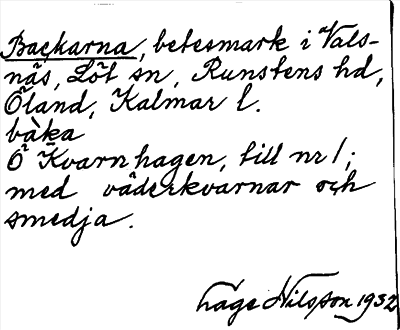 Backarna, betesmark i Vals-
näs, Löt sn, Runstens hd,
Öland, Kalmar l.
bàka
Ö Kvarnhagen, till nr 1;
med väderkvarnar och
smedja.
Tage Nilsson 1932